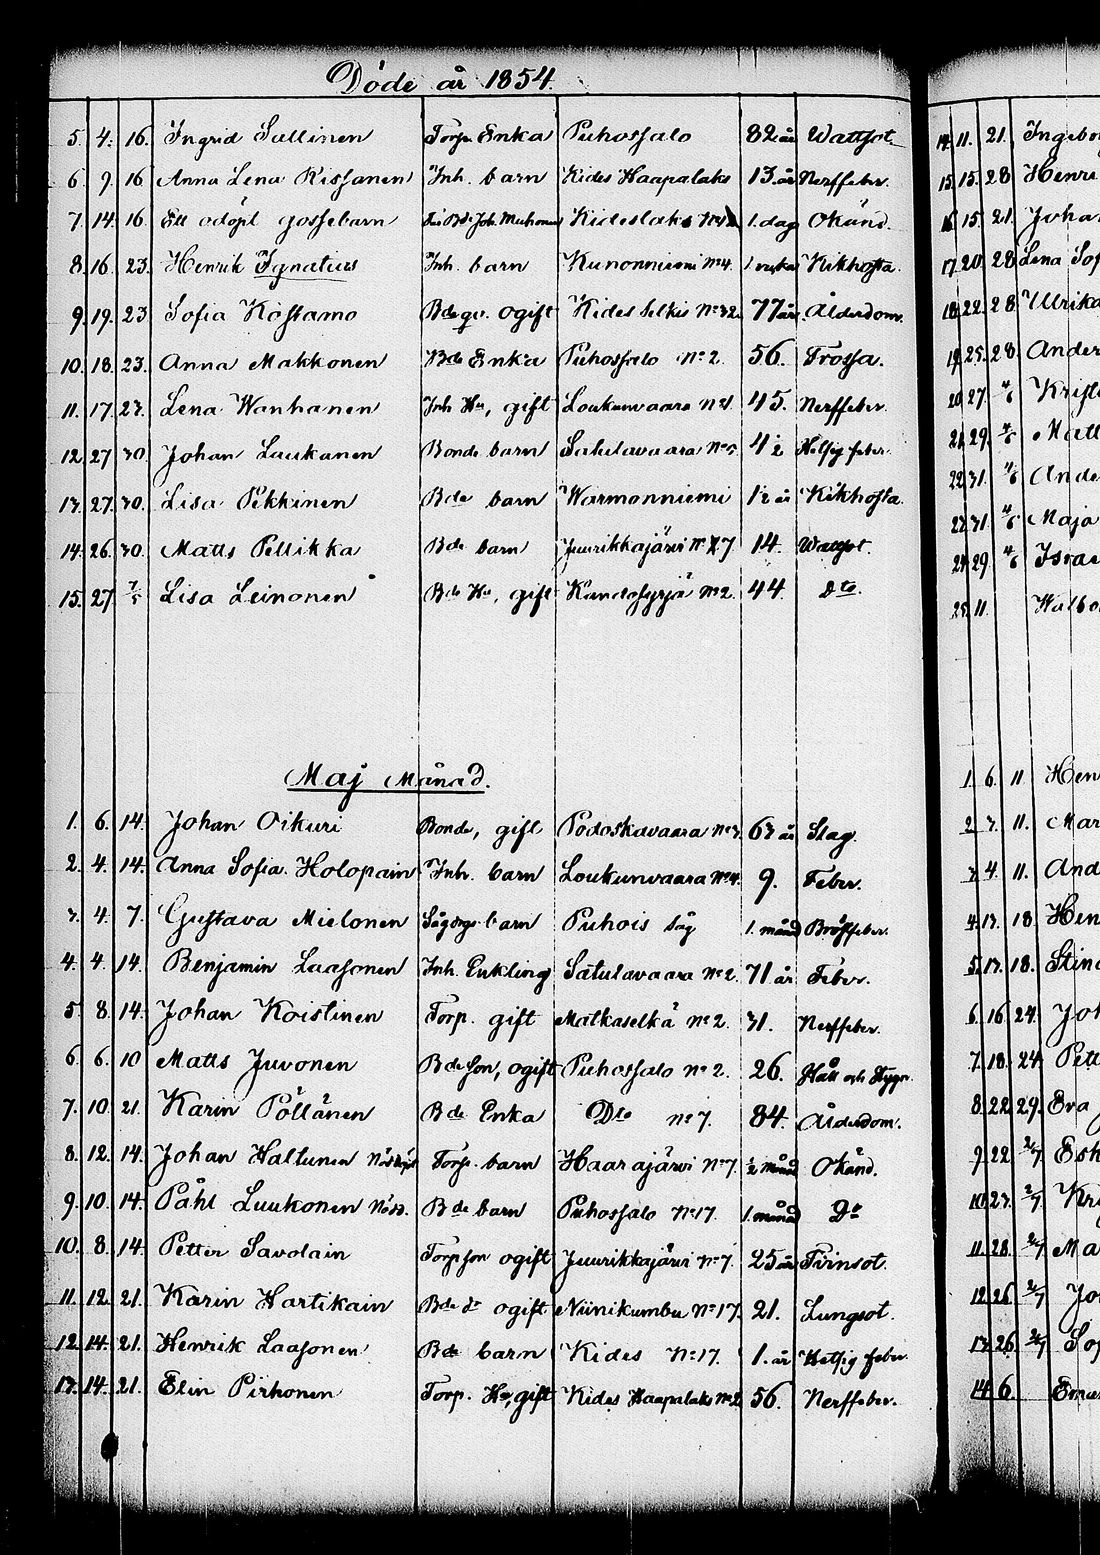 Döde år 1854.
5. 4. 16. Ingrid Sallinen Torp. Enka Puhossalo 82 år Wattsot
6. 9. 16 Anna Lena Rissanen Inh. barn Kides Haapalaks 13 år Nerffeber.
7. 14. 16 Ett odöpt gossebarn Kideslaks 1. dag Okänd.
8. 16. 23. Henrik Ignatius Inh. barn Kunonniemi No 4. Kikhosta.
9. 19. 23 Sofia Kostamo ogift Kides Selkis No 32. 77 år Ålderdom.
10. 18. 23. Anna Makkonen Bde Enka Puhossalo No 2. 56. Frossa.
11. 17. 23. Lena Wanhanen Inh Hu, gift Loukunvaara 45. Nerffeber
12. 27 30. Johan Laukanen Bonde barn Satulavaara 4½ Hetsig feber
13. 27. 30. Lisa Pekkinen Bde barn Warmonniemi 1½ år Kikhosta
14. 26. 30. Matts Pellikka Bde barn Juurikkajärvi 14. Wattsot.
15. 27 7/5 Lisa Leinonen Bde Hu, gift Kundosyrjä No 2. 44. Dto.
Maj Månad.
1. 6. 14. Johan Oikuri Bonde, gift Podoskavaara No 3. 63 år Slag.
2. 4. 14. Anna Sofia Holopain Inh. barn Loukunvaara No 4. 9. Feber.
3. 4. 7. Gustava Mielonen barn Puhois Såg 1. månd Bröstfeber.
4. 4. 14. Benjamin Laasonen Inh. Enkling Satulavaara No 2. 71 år Feber.
5. 8. 14. Johan Koistinen Torp. gift Matkaselkä No 2. 31. Nerffeber.
6. 6. 10 Matts Juvonen Bde Son, ogift Puhossalo No 2. 26. Håll och Stygn.
7. 10. 21. Karin Pöllänen Bde Enka Dto No 7. 84. Ålderdom.
8. 12. 14. Johan Haltunen Nöddöpt Torp. barn Haarajärvi No 7. ½ månd Okänd.
9. 10. 14. Påhl Luukonen Nödd. Bde barn Puhossalo No 17. 1. månad Do
10. 8. 14. Petter Savolain Torp son ogift Juurikkajärvi No 7. 25 år Tvinsot.
11. 12. 21. Karin Hartikain Bde dr ogift Niinikumbu No 17. 21. Lungsot.
12. 14. 21. Henrik Laasonen Bde barn Kides No 17. 1. år Hetsig feber.
13. 14. 21. Elin Pirhonen Torp. Hu, gift Kides Haapalaks No 2 56. Nerffeber.
14. 11. 21. Ingebor
15. 15. 28 Henri
16. 15. 21. Joha
17. 20. 28 Lena Sof
18. 22. 28 Ulrika
19. 25. 28 Ander
20. 27. 4/6 Krist
21. 29. 4/6 Matt
22. 31. 4/6 Ande
23. 31. 4/6 Maja
24. 29 4/6 Israe
25. 11. Walbo
1. 6. 11 Hen
2. 3. 11. Mar
3. 4. 11. And
4. 13. 18. Hen
5. 13. 18. Stin
6. 16 24. Joh
7. 18. 24. Pett
8. 22. 29. Eva
9. 22 2/7 Esk
10. 23. 2/7 Kri
11. 28. 2/7 Ma
12. 26. 2/7 Jo
13. 26. 2/7 Sof
14. 6.